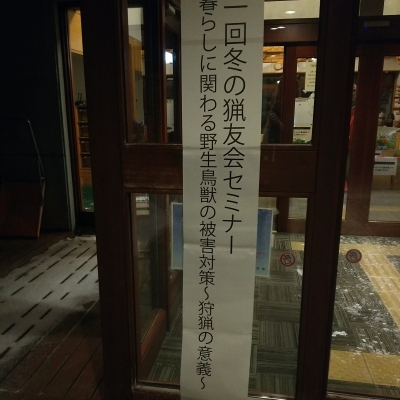 一回冬の猟友会セミナー
暮らしに関わる野生鳥獣の被害対策～狩猟の意義～